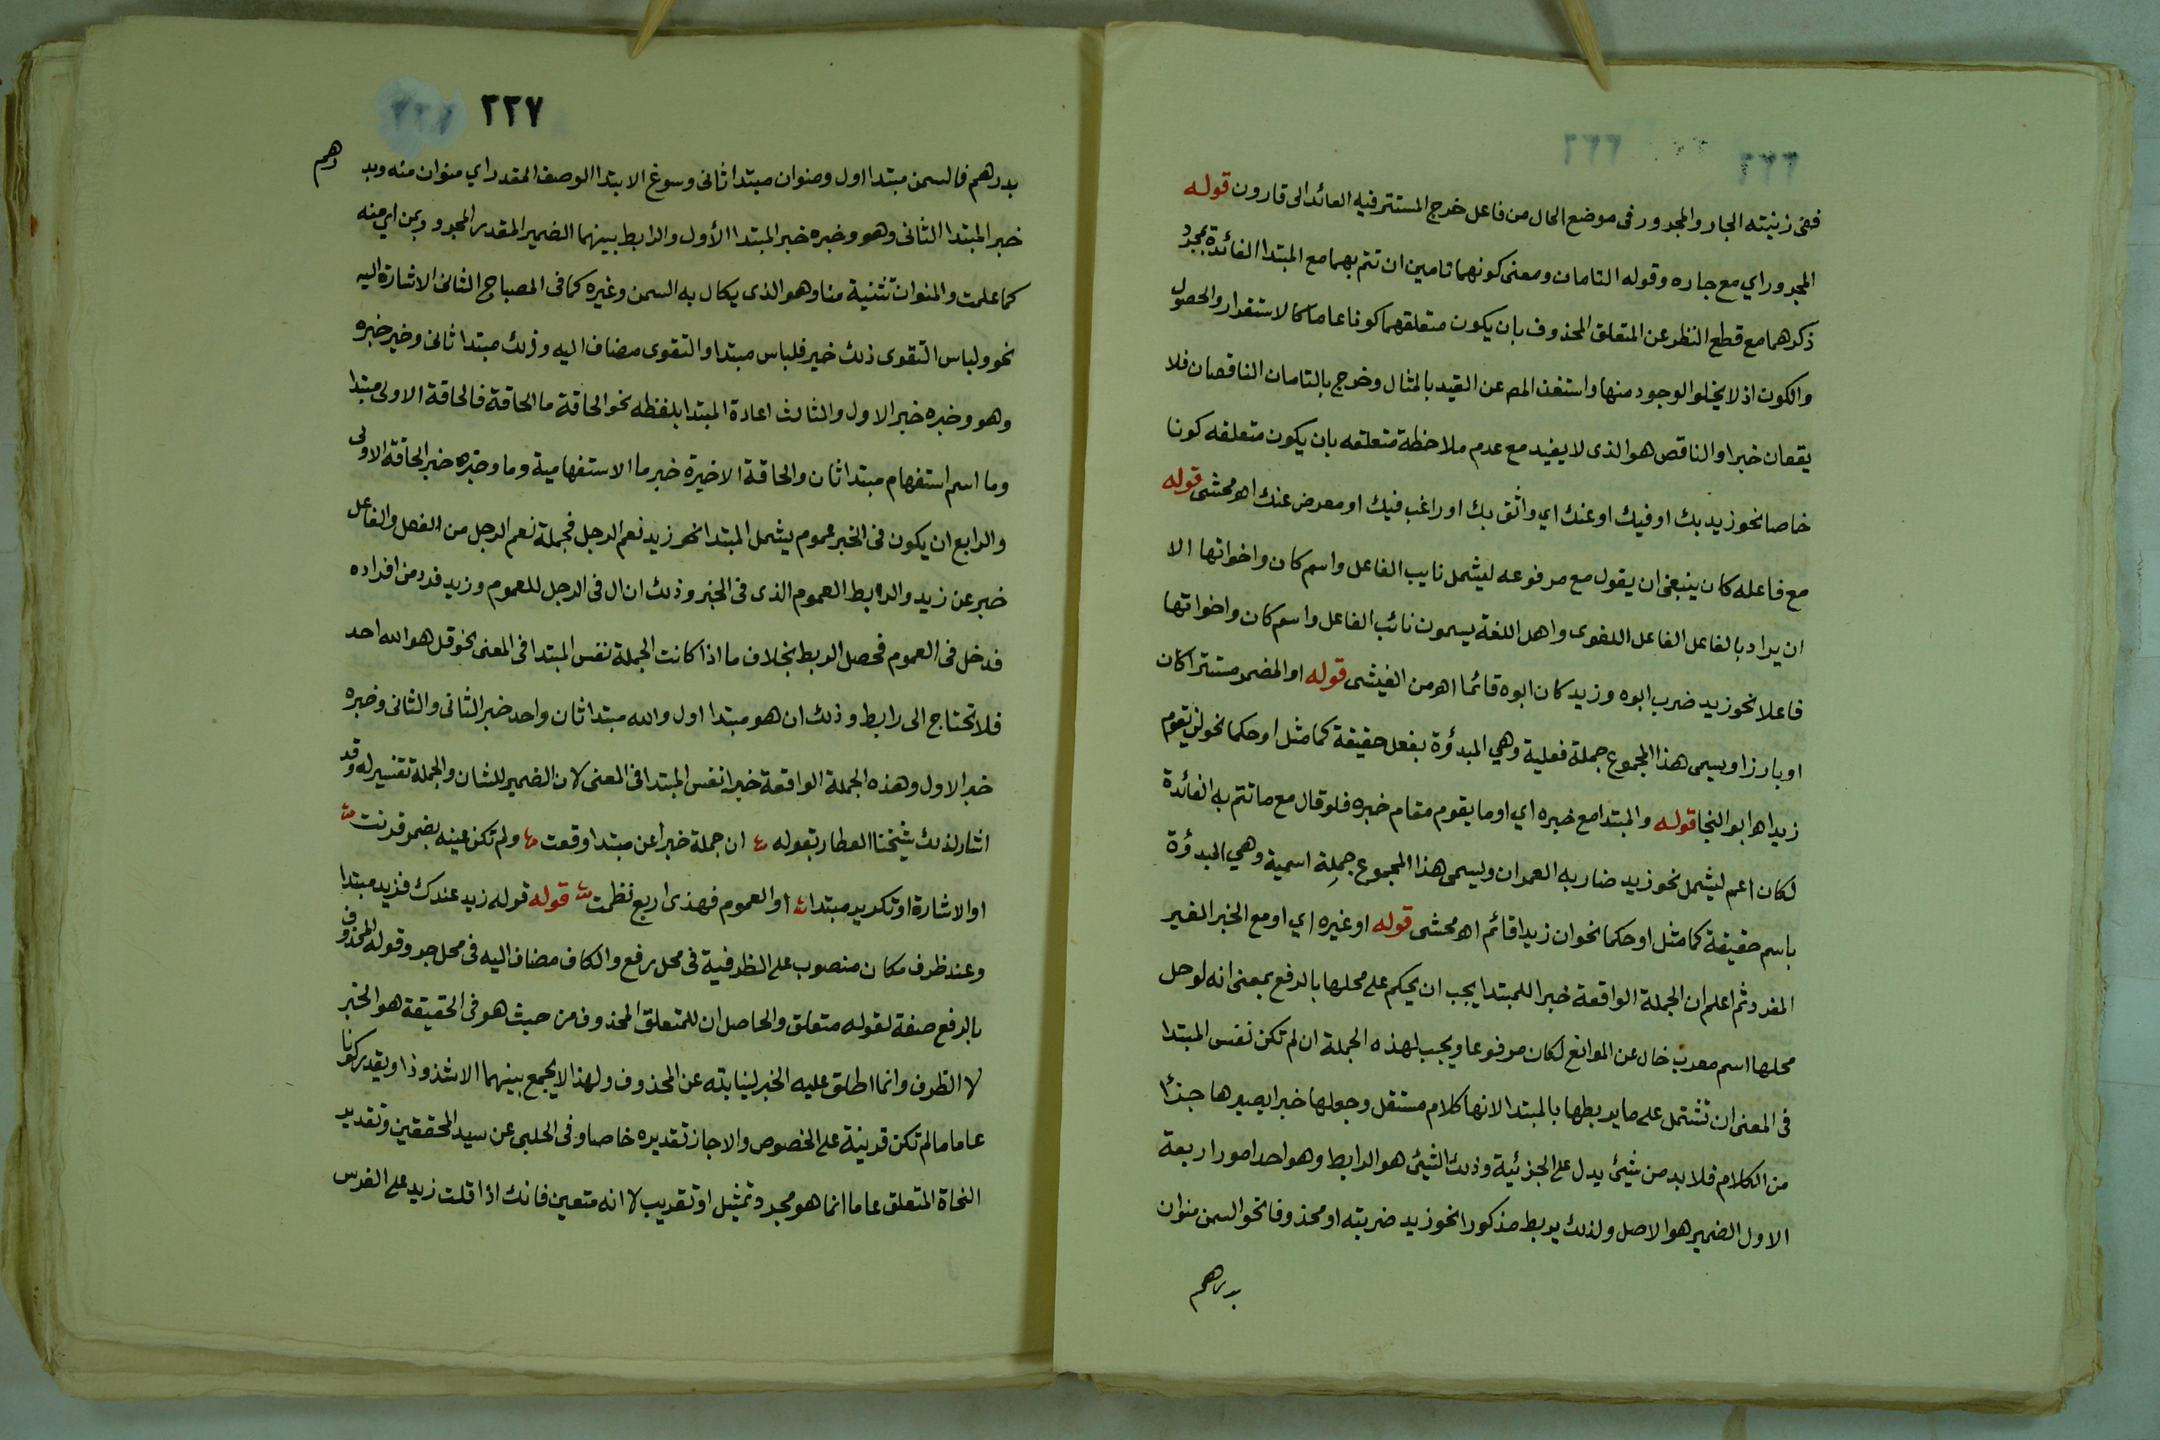 ففى زنيته الجار والمجرور فى موضع الحال من فاعل خرج المستتر فيه العائد الى قارون قوله
المجرور اي مع جاره وقوله التامان ومعنى كونهما تامين ان تتم بهما مع المبتدا الفائدة بمجرد
ذكرهما مع قطع النظر عن المتعلق المحذوف بان يكون متعلقهما كونا عاما كالاستقرار والحصول
والكون اذ لا يخلو الوجود منها واستغنى المص عن القيد بالمثال وخرج بالتامان الناقصان فلا
يقعان خبرا والناقص هو الذى لا يفيد مع عدم ملاحظة متعلقه بان يكون متعلقه كونا
خاصا نحو زيد بك او فيك او عنك اي واثق بك او راغب فيك او معرض عنك اهـ محشى قوله
مع فاعله كان ينبغى ان يقول مع مرفوعه ليشمل نايب الفاعل واسم كان واخواتها الا
ان يراد بالفاعل الفاعل اللغوى واهل اللغة يسمون نائب الفاعل واسم كان واخواتها
فاعلا نحو زيد ضرب ابوه وزيد كان ابوه قائما اهـ من الفيشى قوله او المضمر مستترا كان
او بارزا ويسمى هذا المجموع جملة فعلية وهي المبدؤة بفعل حقيقة كما مثل او حكما نحو لن يقوم
زيد اهـ ابو النجا قوله والمبتدا مع خبره اي او ما يقوم مقام خبره فلو قال مع ما تتم به الفائدة
لكان اعم ليشمل نحو زيد ضاربه العمران ويسمى هذا المجموع جملة اسمية وهي المبدؤة
باسم حقيقة كما مثل او حكما نحو ان زيدا قائم اهـ محشى قوله او غيره اي او مع الخبر الغير
المفرد ثم اعلم ان الجملة الواقعة خبرا للمبتدا يجب ان يحكم على محلها بالرفع بمعنى انه لو حل
محلها اسم معرب خال عن الموانع لكان مرفوعا ويجب لهذه الجملة ان لم تكن نفس المبتدا
فى المعنى ان تشتمل على ما يربطها بالمبتدا لانها كلام مستقل وجعلها خبرا يصيرها جزأ
من الكلام فلا بد من شيئ يدل على الجزئية وذلك الشيئ هو الرابط وهو احد امور اربعة
الاول الضمير هو الاصل ولذلك يربط مذكورا نحو زيد ضربته او محذوفا نحو السمن منوان
بدرهم
٢٢٧
بدرهم فالسمن مبتدا اول ومنوان مبتدا ثانى وسوغ الابتدا الوصف المقدر اي منوان منه وبد رهم
خبر المبتدا الثانى وهو وخبره خبر المبتدا الأول والرابط بينهما الضمير المقدر المجرور بمن اي منه
كما علمت والمنوان تثنية منا وهو الذى يكال به السمن وغيره كما فى المصباح الثانى الاشارة اليه
نحو ولباس التقوى ذلك خير فلباس مبتدا والتقوى مضاف اليه وذلك مبتدا ثانى وخير خبره
وهو وخبره خبر الاول والثالث اعادة المبتدا بلفظه نحو الحاقة ما الحاقة فالحاقة الاولى مبتدا
وما اسم استفهام مبتدا ثان والحاقة الاخيرة خبر ما الاستفهامية وما وخبره خبر الحاقة الاولى
والرابع ان يكون فى الخبر عموم يشمل المبتدا نحو زيد نعم الرجل فجملة نعم الرجل من الفعل والفاعل
خبر عن زيد والرابط العموم الذى فى الخبر وذلك ان ال فى الرجل للعموم وزيد فرد من افراده
فدخل فى العموم فحصل الربط بخلاف ما اذا كانت الجملة نفس المبتدا فى المعنى نحو قل هو الله احد
فلا تحتاج الى رابط وذلك ان هو مبتدا اول والله مبتدا ثان واحد خبر الثانى والثانى وخبره
خبر الاول وهذه الجملة الواقعة خبرا نفس المبتدا فى المعنى لان الضمير للشان والجملة تفسير له وقد
اشار لذلك شيخنا العطار بقوله ان جملة خبرا عن مبتدا وقعت ولم تكن عينه بضمر قرنت
او الاشارة او تكرير مبتدا او العموم فهذى اربع نظمت قوله قوله زيد عندك فزيد مبتدا
وعند ظرف مكان منصوب على الظرفية فى محل رفع والكاف مضاف اليه فى محل جر وقوله المحذوف
بالرفع صفة لقوله متعلق والحاصل ان للمتعلق المحذوف من حيث هو فى الحقيقة هو الخبر
لا الظرف وانما اطلق عليه الخبر لنيابته عن المحذوف ولهذا لا يجمع بينهما الا شذوذا ويقدر كونا
عاما ما لم تكن قرينة على الخصوص والا جاز تقديره خاصا وفى الحلبى عن سيد المحققين وتقدير
النحاة المتعلق عاما انما هو مجرد تمثيل او تقريب لا انه متعين فانك اذا قلت زيد على الفرس